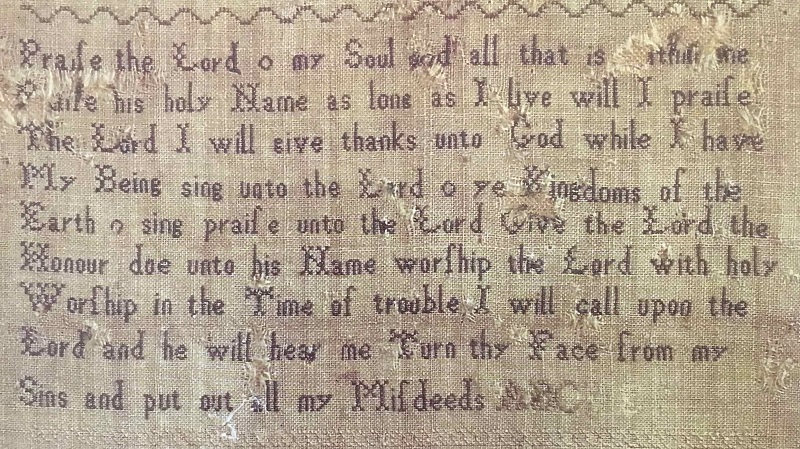 Praiſe the Lord o my Soul and all that is within me
Praiſe his holy Name as long as I live will I praiſe
The Lord I will give thanks unto God while I have
My Being sing unto the Lord o ye Kingdoms of the
Earth o sing praiſe unto the Lord Give the Lord the
Honour due unto his Name worſhip the Lord with holy
Worſhip in the Time of trouble I will call upon the
Lord and he will hear me Turn thy Face from my
Sins and put out all my Miſdeeds ABC